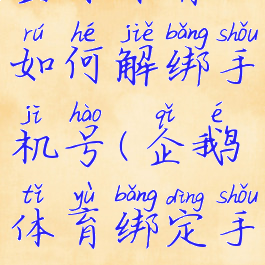 rú hé jiě bǎng shǒu
如何解绑手
jī hào qǐ é
机号(企鹅
tǐ yù bǎng dìng shǒu
体育绑定手